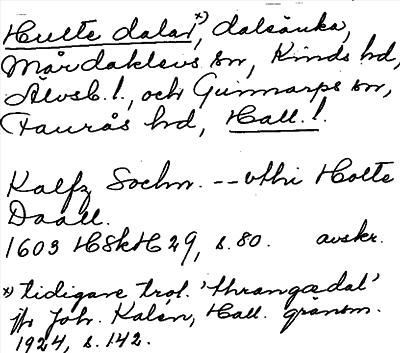 Hulte dalar ×), dalsänka,
Mårdaklevs sn, Kinds hd,
Älvsb. l., och Gunnarps sn,
Faurås hd, Hall. l.
Kalfz Sochn. -- vthi Holte
Daall.
1603 HSkH 29, s. 80. avskr.
×) tidigare trol. 'thrangædal'
jfr Joh. Kalén, Hall. gränsm.
1924, s. 142.